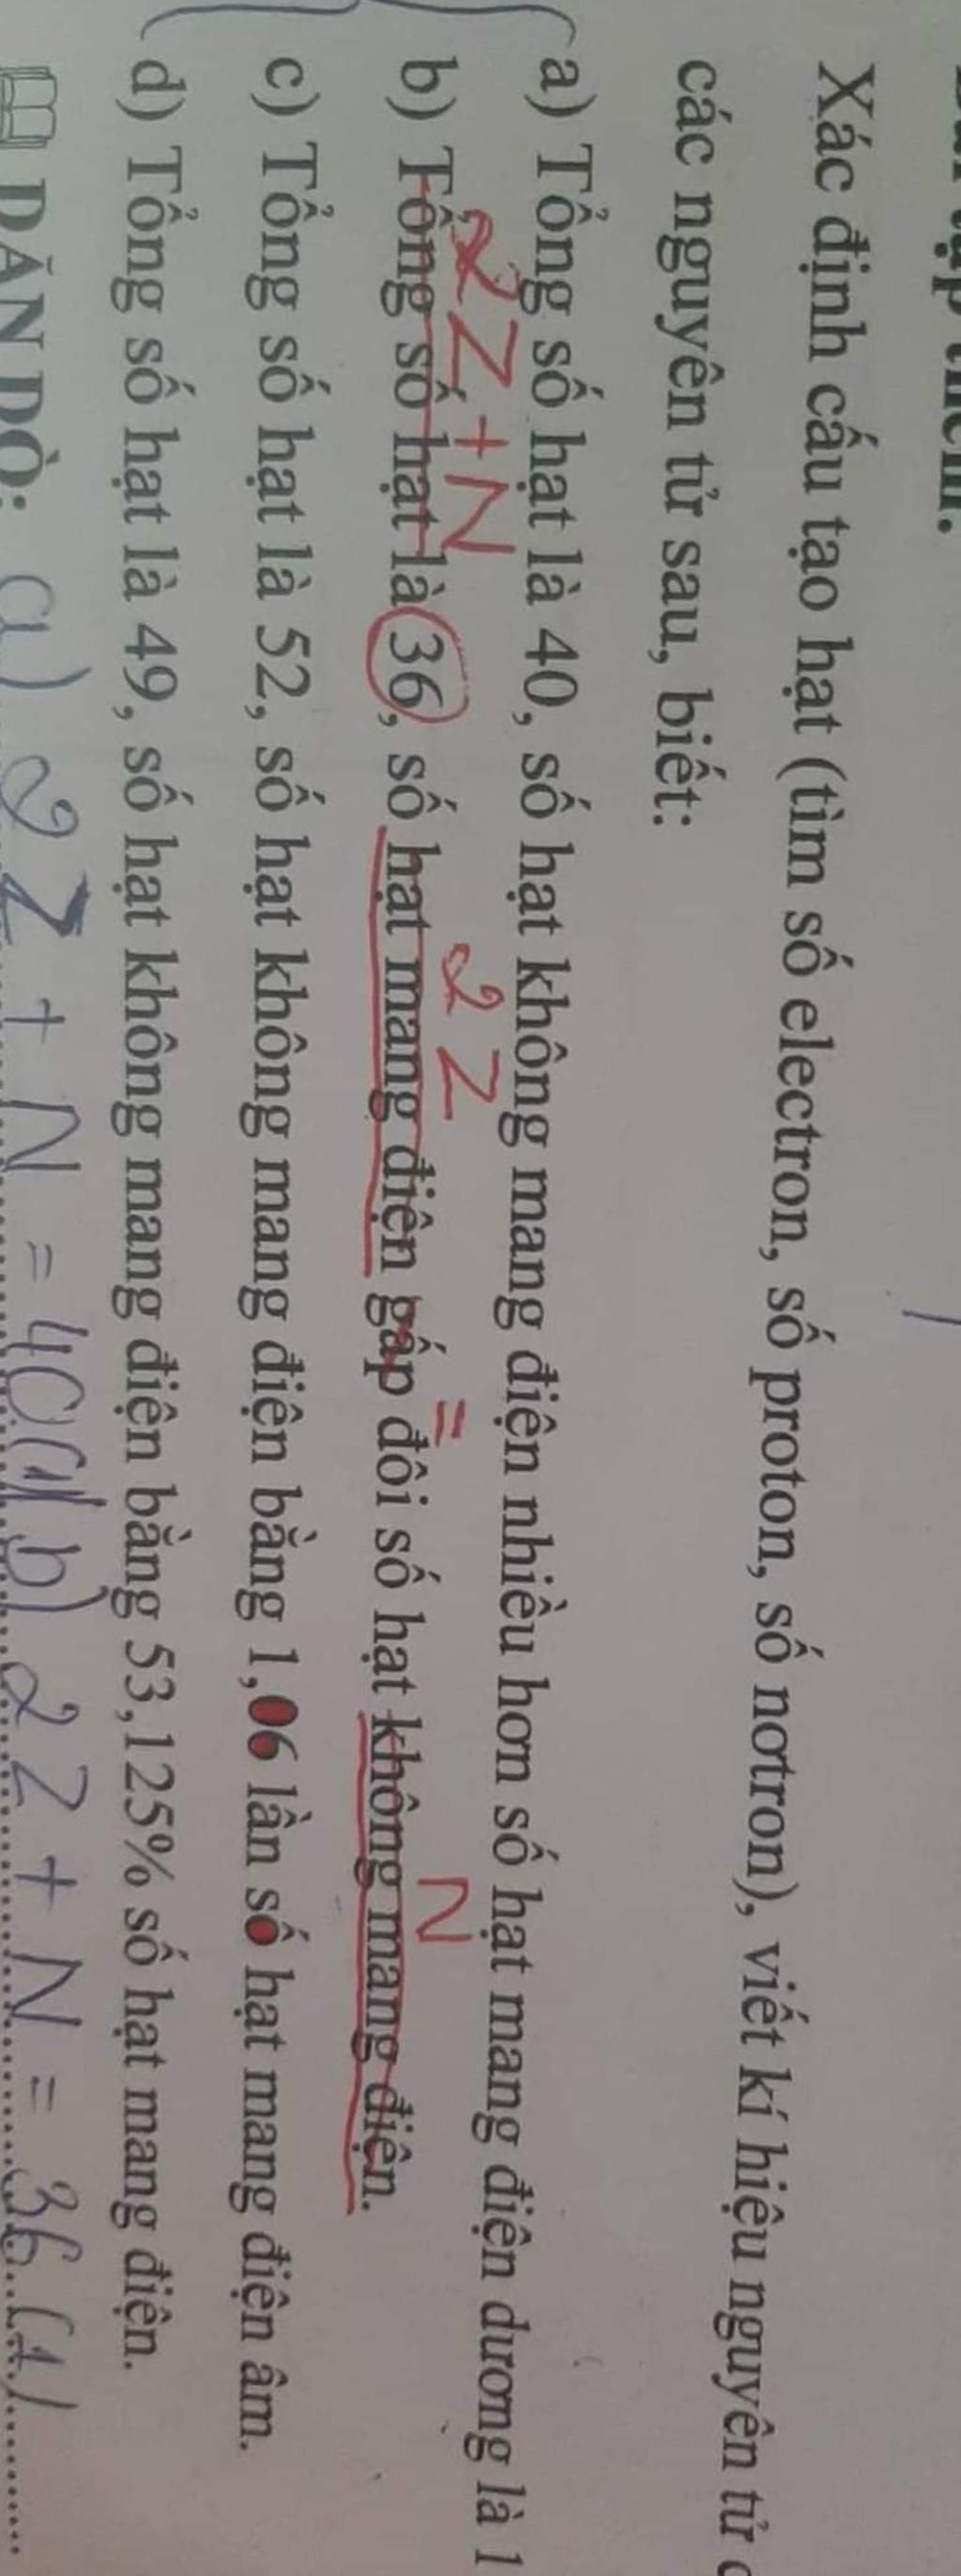 Xác định cấu tạo hạt (tìm số electron, số proton, số nơtron), viết kí hiệu nguyên tử
các nguyên tử sau, biết:
a) Tổng số hạt là 40, số hạt không mang điện nhiều hơn số hạt mang điện dương là 1
2Z+N 2Z = N
b) Tổng số hạt là 36, số hạt mang điện gấp đôi số hạt không mang điện.
c) Tổng số hạt là 52, số hạt không mang điện bằng 1,06 lần số hạt mang điện âm.
d) Tổng số hạt là 49, số hạt không mang điện bằng 53,125% số hạt mang điện.
DẶN DÒ: a) 2Z + N = 40 (1) b) 2Z + N = 36 (1)